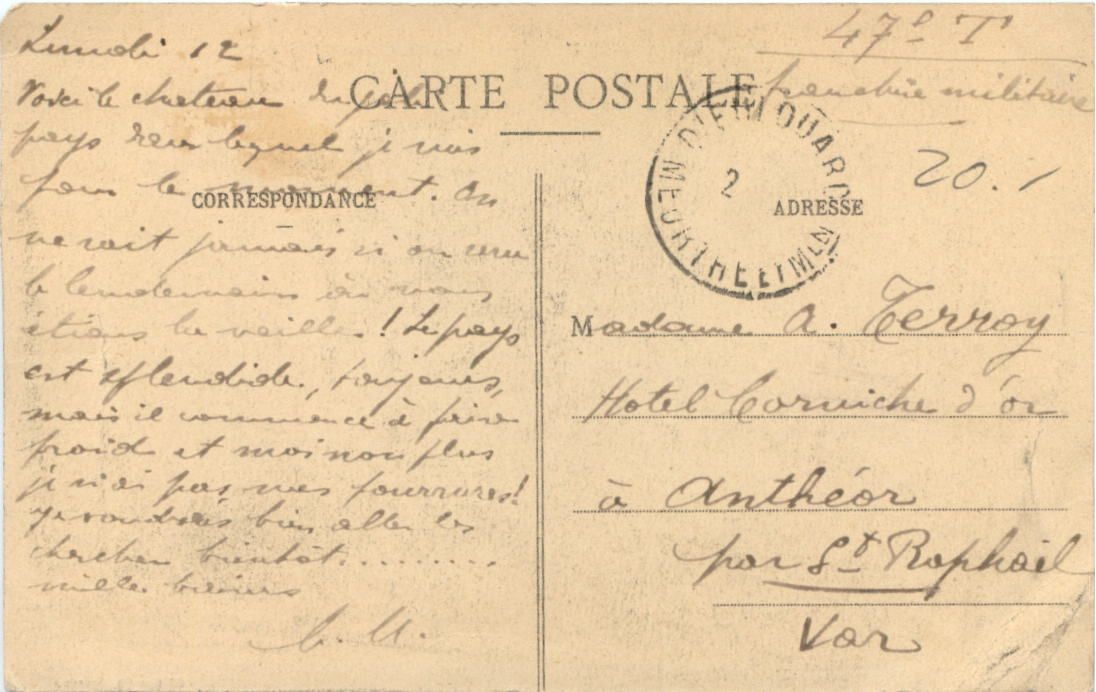 Lundi 12
Voici le chateau du joli
pays dans lequel je suis
pour le moment. On
ne sait jamais si on sera
le lendemain où nous
étions la veille! Le pays
est splendide, toujours,
mais il commence à faire
froid et moi non plus
je n'ai pas mes fourrures!
Je voudrais bien aller les
chercher bientôt.........
mille
CARTE POSTALE
CORRESPONDANCE
ADRESSE
47e T
franchise militaire
DIEULOUARD
MEURTHE ET M
2
20.1
Madame A. Terroy
Hotel Corniche d'or
à Anthéor
par St Raphaël
Var